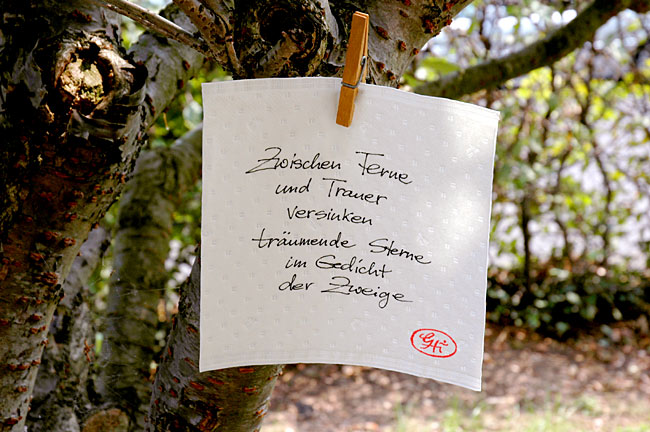 Zwischen Ferne
und Trauer
versinken
träumende Sterne
im Gedicht
der Zweige